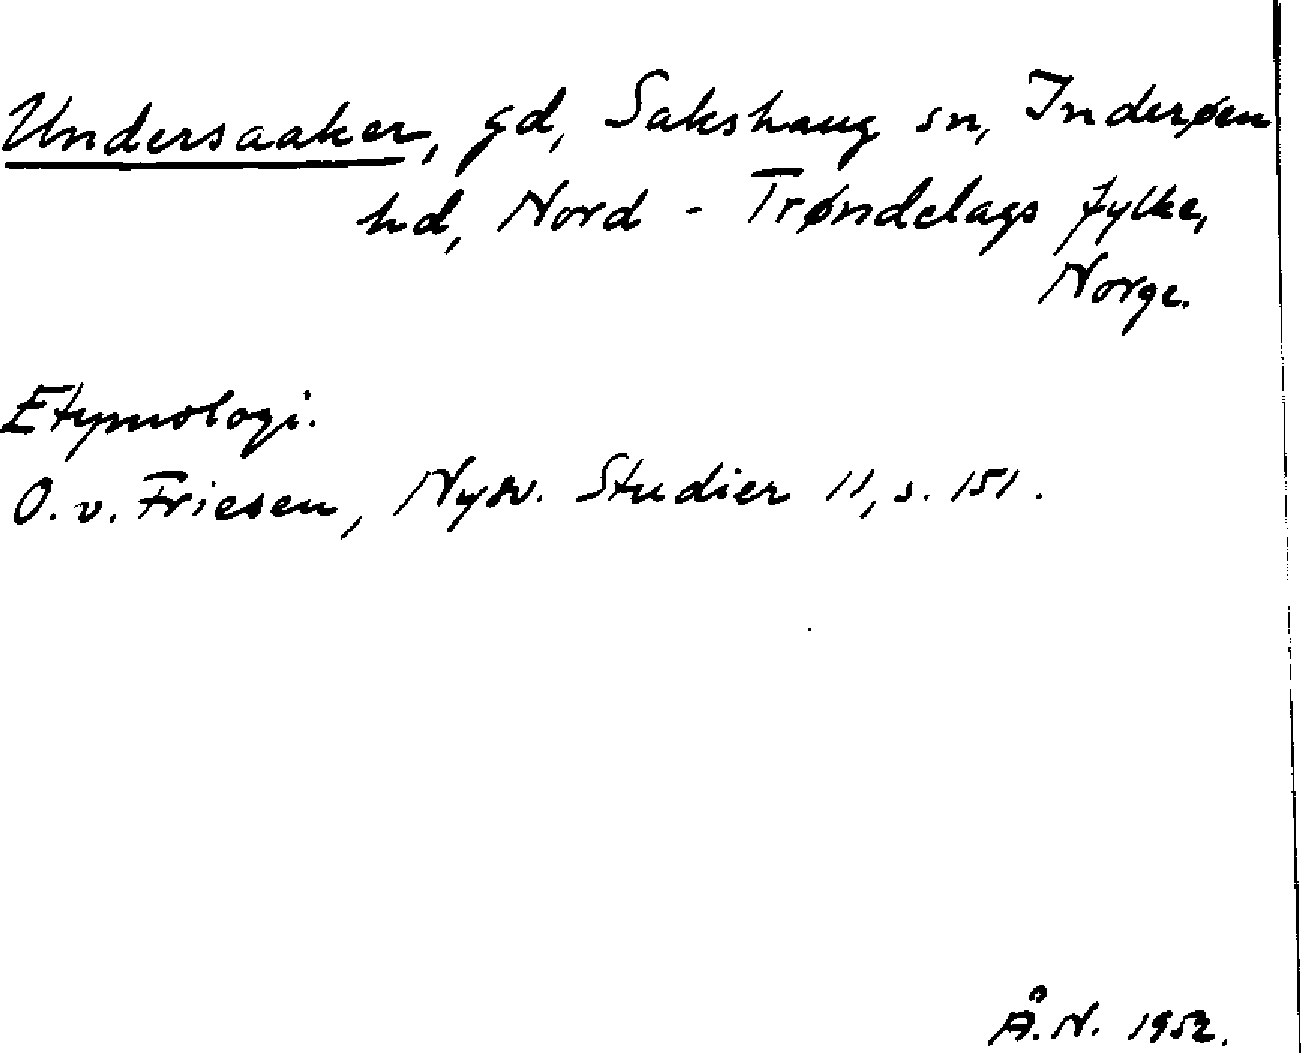 Undersaaker, gd, Sakshaug sn, Inderøen
hd, Nord - Trøndelags fylke,
Norge.
Etymologi.
O. v. Friesen, Nysv. Studier 11, s. 151.
Å. N. 1952.